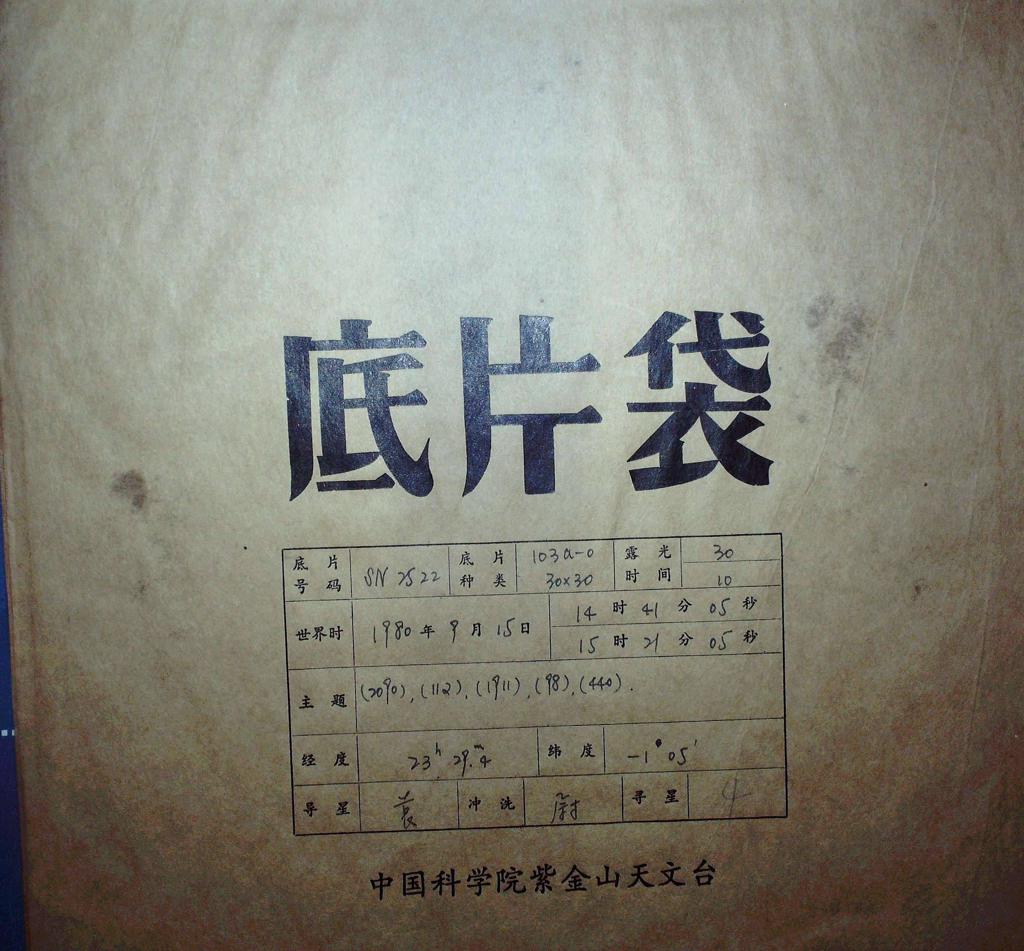 底片袋
底片号码 SN 2522 底片种类 103a-0 30×30 露光时间 30 10
世界时 1980年9月15日 14时41分05秒
15时21分05秒
主题 (2090), (112), (1911), (98), (440).
经度 23h 29.m4 纬度 -1°05'
导星 冲洗 寻星
中国科学院紫金山天文台